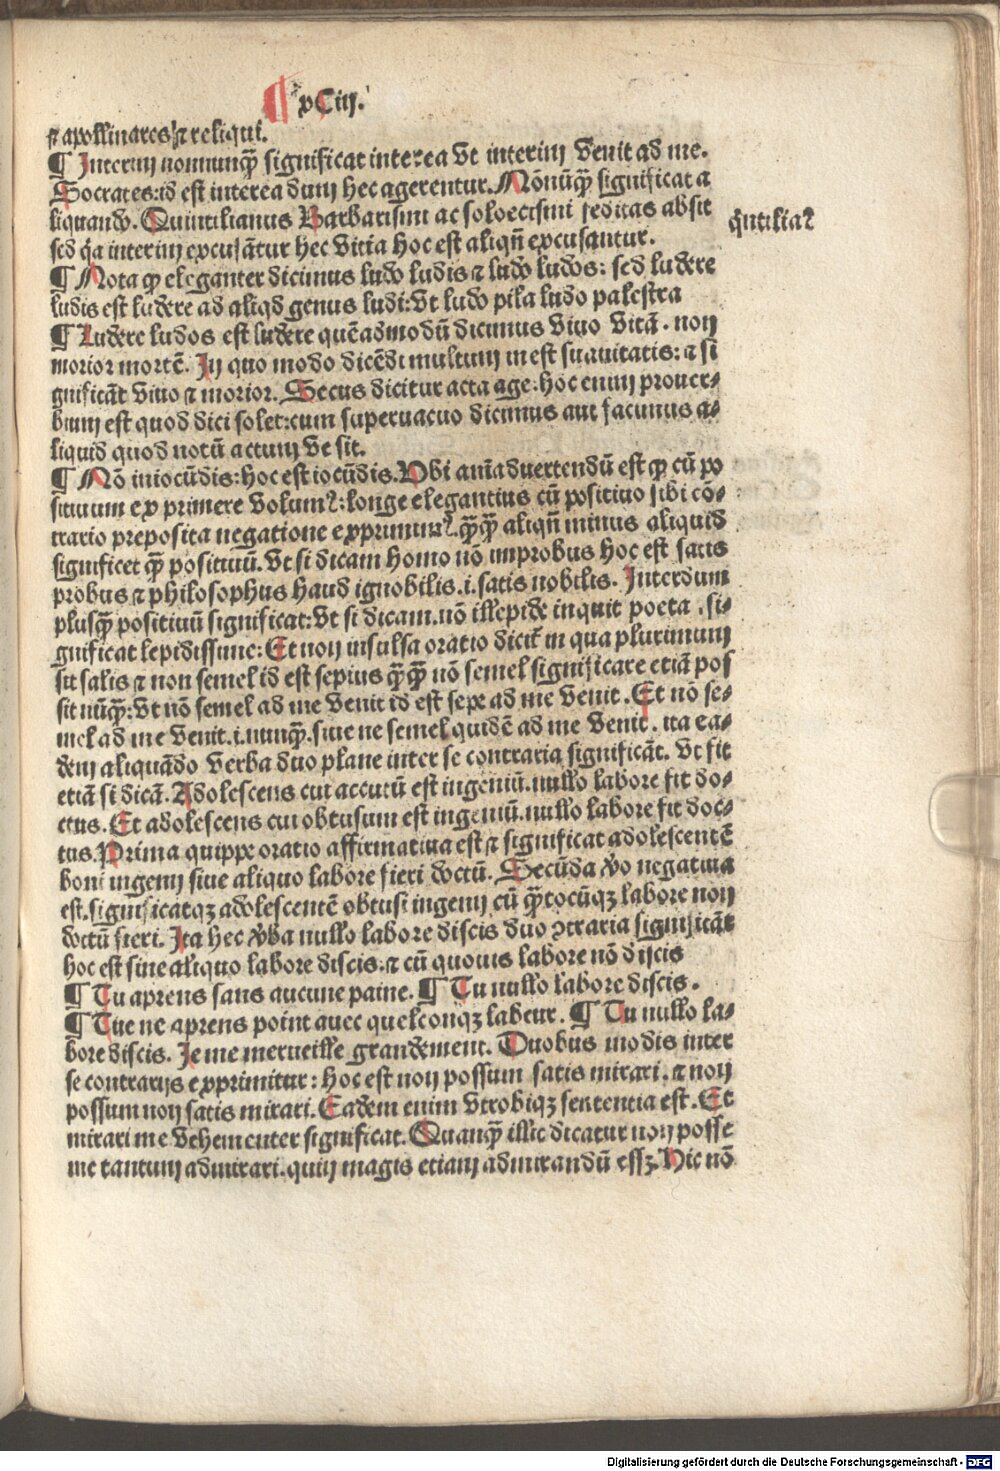 ¶ xCiij.
⁊ apollinares ⁊ reliqui.
¶ Interim nonnunqꝫ significat interea Vt interim Venit ad me.
Socrates: id est interea dum hec agerentur. Nōnūqꝫ significat a
liquando. Quintilianus Barbarismi ac soloecismi feditas absit
q̄ntiliaꝰ
sed q̄a interim excusātur hec Vitia hoc est aliqn̄ excusantur.
¶ Nota ꝙ eleganter dicimus ludo ludis ⁊ ludo ludos: sed ludere
ludis est ludere ad aliqd genus ludi: Vt ludo pila ludo palestra
¶ Ludere ludos est ludere quēadmodū dicimus Viuo Vitā. non
morior mortē. In quo modo dicēdi multum inest suauitatis: ⁊ si
gnificāt Viuo ⁊ morior. Secus dicitur acta age: hoc enim prouer-
bium est quod dici solet: cum superuacuo dicimus aut facimus a-
liquid quod notū actum Ve sit.
¶ Nō iniocūdis: hoc est iocūdis. Vbi aīaduertendū est ꝙ cū po
situum exprimere Volumꝰ: longe elegantius cū positiuo sibi cō-
trario preposita negatione exprimimꝰ. qꝫqꝫ aliqn̄ minus aliquid
significet qꝫ positiuū. Vt si dicam homo nō improbus hoc est satis
probus ⁊ philosophus haud ignobilis .i. satis nobilis. Interdum
plusqꝫ positiuū significat: Vt si dicam. nō illepide inquit poeta . si-
gnificat lepidissime: Et non insulsa oratio dicit̄ in qua plurimum
sit salis ⁊ non semel id est sepius qꝫqꝫ nō semel significare etiā pos
sit nūqꝫ: Vt nō semel ad me Venit id est sepe ad me Venit. Et nō se-
mel ad me Venit .i. nunqꝫ. siue ne semel quidē ad me Venit. ita ea-
dem aliquādo Verba duo plane inter se contraria significāt. Vt fit
etiā si dicā. Adolescens cui accutū est ingeniū. nullo labore fit do-
ctus. Et adolescens cui obtusum est ingeniū. nullo labore fit doc-
tus. Prima quippe oratio affirmatiua est ⁊ significat adolescentē
boni ingenij siue aliquo labore fieri doctū. Secūda v̄o negatiua
est. significatqꝫ adolescentē obtusi ingenij cū qꝫtocūqꝫ labore non
doctū fieri. Ita hec v̄ba nullo labore discis duo ꝯtraria significāt
hoc est sine aliquo labore discis: ⁊ cū quouis labore nō discis
¶ Tu aprens sans aucune paine. ¶ Tu nullo labore discis.
¶ Tue ne aprens point auec quelconqꝫ labeur. ¶ Tu nullo la-
bore discis. Je me merueille grandement. Duobus modis inter
se contrarijs exprimitur: hoc est non possum satis mirari. ⁊ non
possum non satis mirari. Eadem enim Vtrobiqꝫ sententia est. Et
mirari me Vehementer significat. Quanqꝫ illic dicatur non posse
me tantum admirari. quin magis etiam admirandū essꝫ. Hic nō
Digitalisierung gefördert durch die Deutsche Forschungsgemeinschaft - DFG